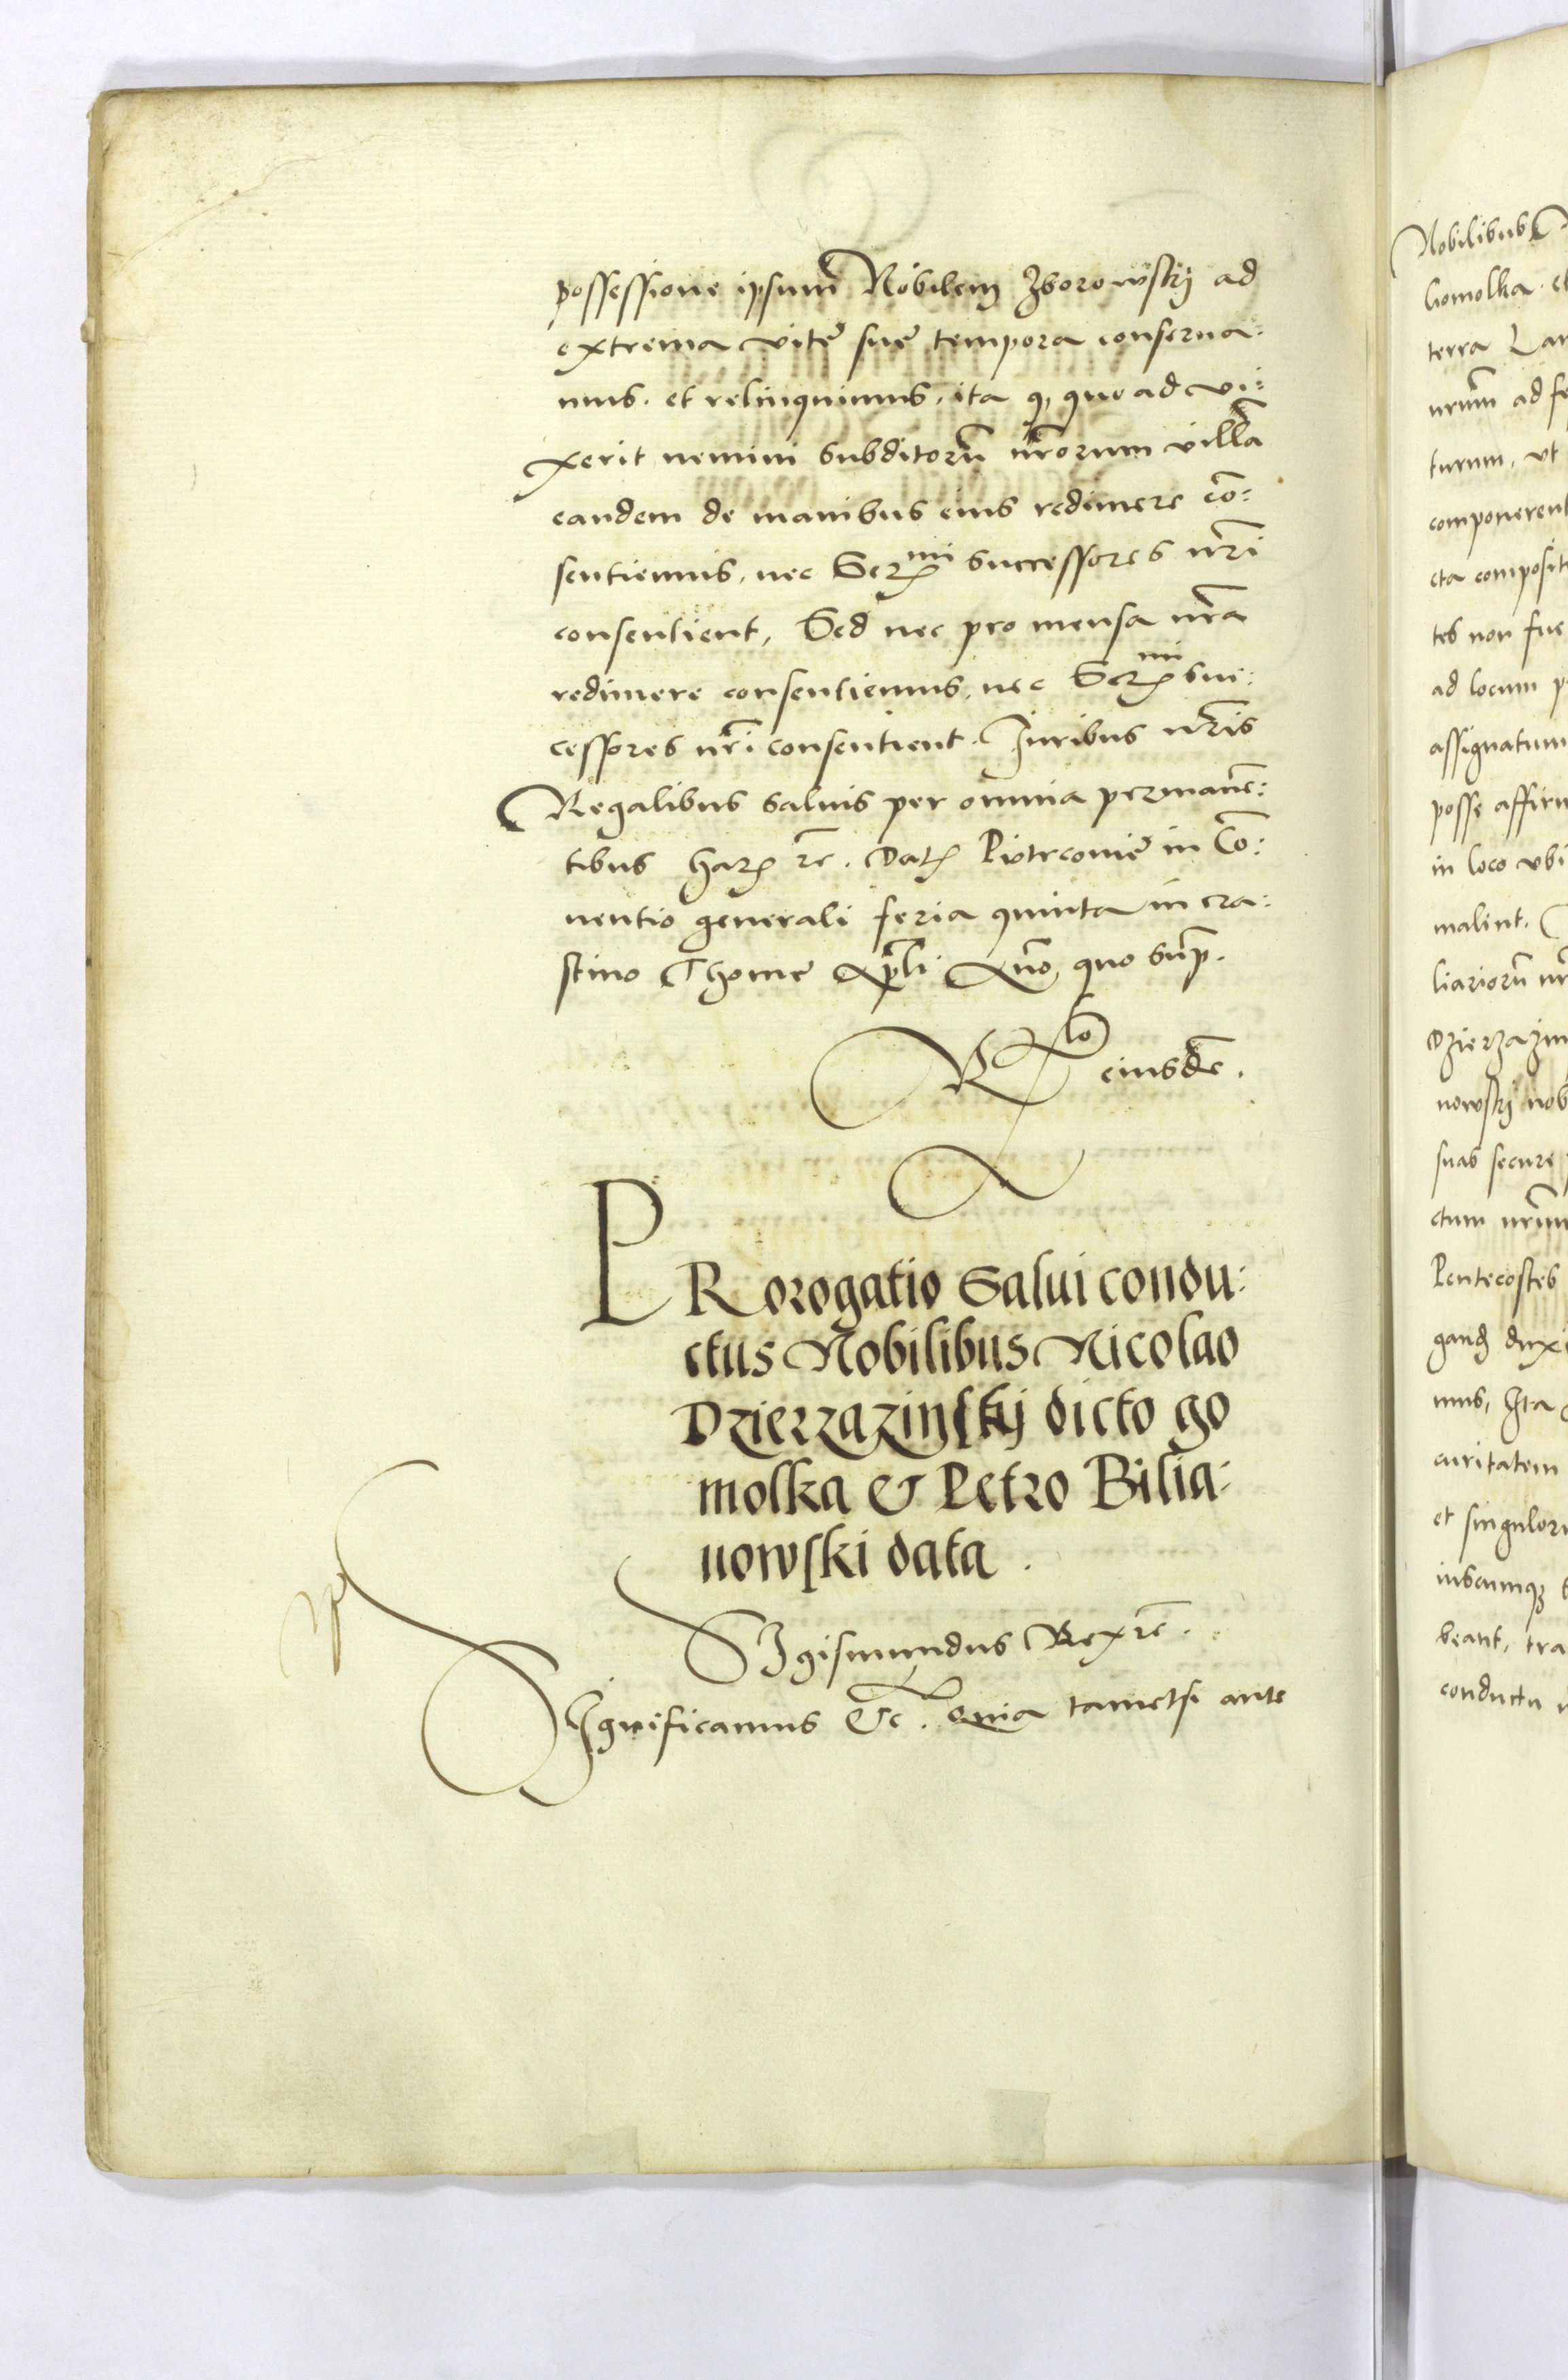 possessione ipsum Nobilem Zborowskij ad
extrema vitę suę tempora conserua:
mus. et relinquimus, ita q, quo ad vi:
xerit nemini subditorū nr̄orum villā
eandem de manibus eius redimere cō:
sentiemus, nec Ser^mi successores nr̄i
consentient, Sed nec pro mensa nr̄a
redimere consentiemus, nec Ser^mi suc:
cessores nr̄i consentient. Iuribus nr̄is
Regalibus saluis per omnia permanē:
tibus Har̄ rc̄. Dat̄ Piotrconię in Cō:
uentio generali feria quinta in cra:
stino Thomę Ap̄li Ano quo sup̄.
R^lo eiusdē.
PRorogatio Salui condu:
ctus Nobilibus Nicolao
Dzierzazinskij dicto go
molka & Petro Bilia:
nowski data.
SIgismundus Rex rc̄.
SIgnificamus &c. Quia tametsi ante
Nobilibus
Gomolka. et
terra Lan
nrūm ad fe
turum, vt
componerent
cta composit
tes non fue
ad locum p
assignatum
posse affirm
in loco vbi
malint.
liariorū nr
Dzierzazin
nowskij nob
suas secure
ctum nrūm
Pentecostes
gand duxi
mus, Ita
curitatem
et singulor
iuscumq
beant, tra
conductu